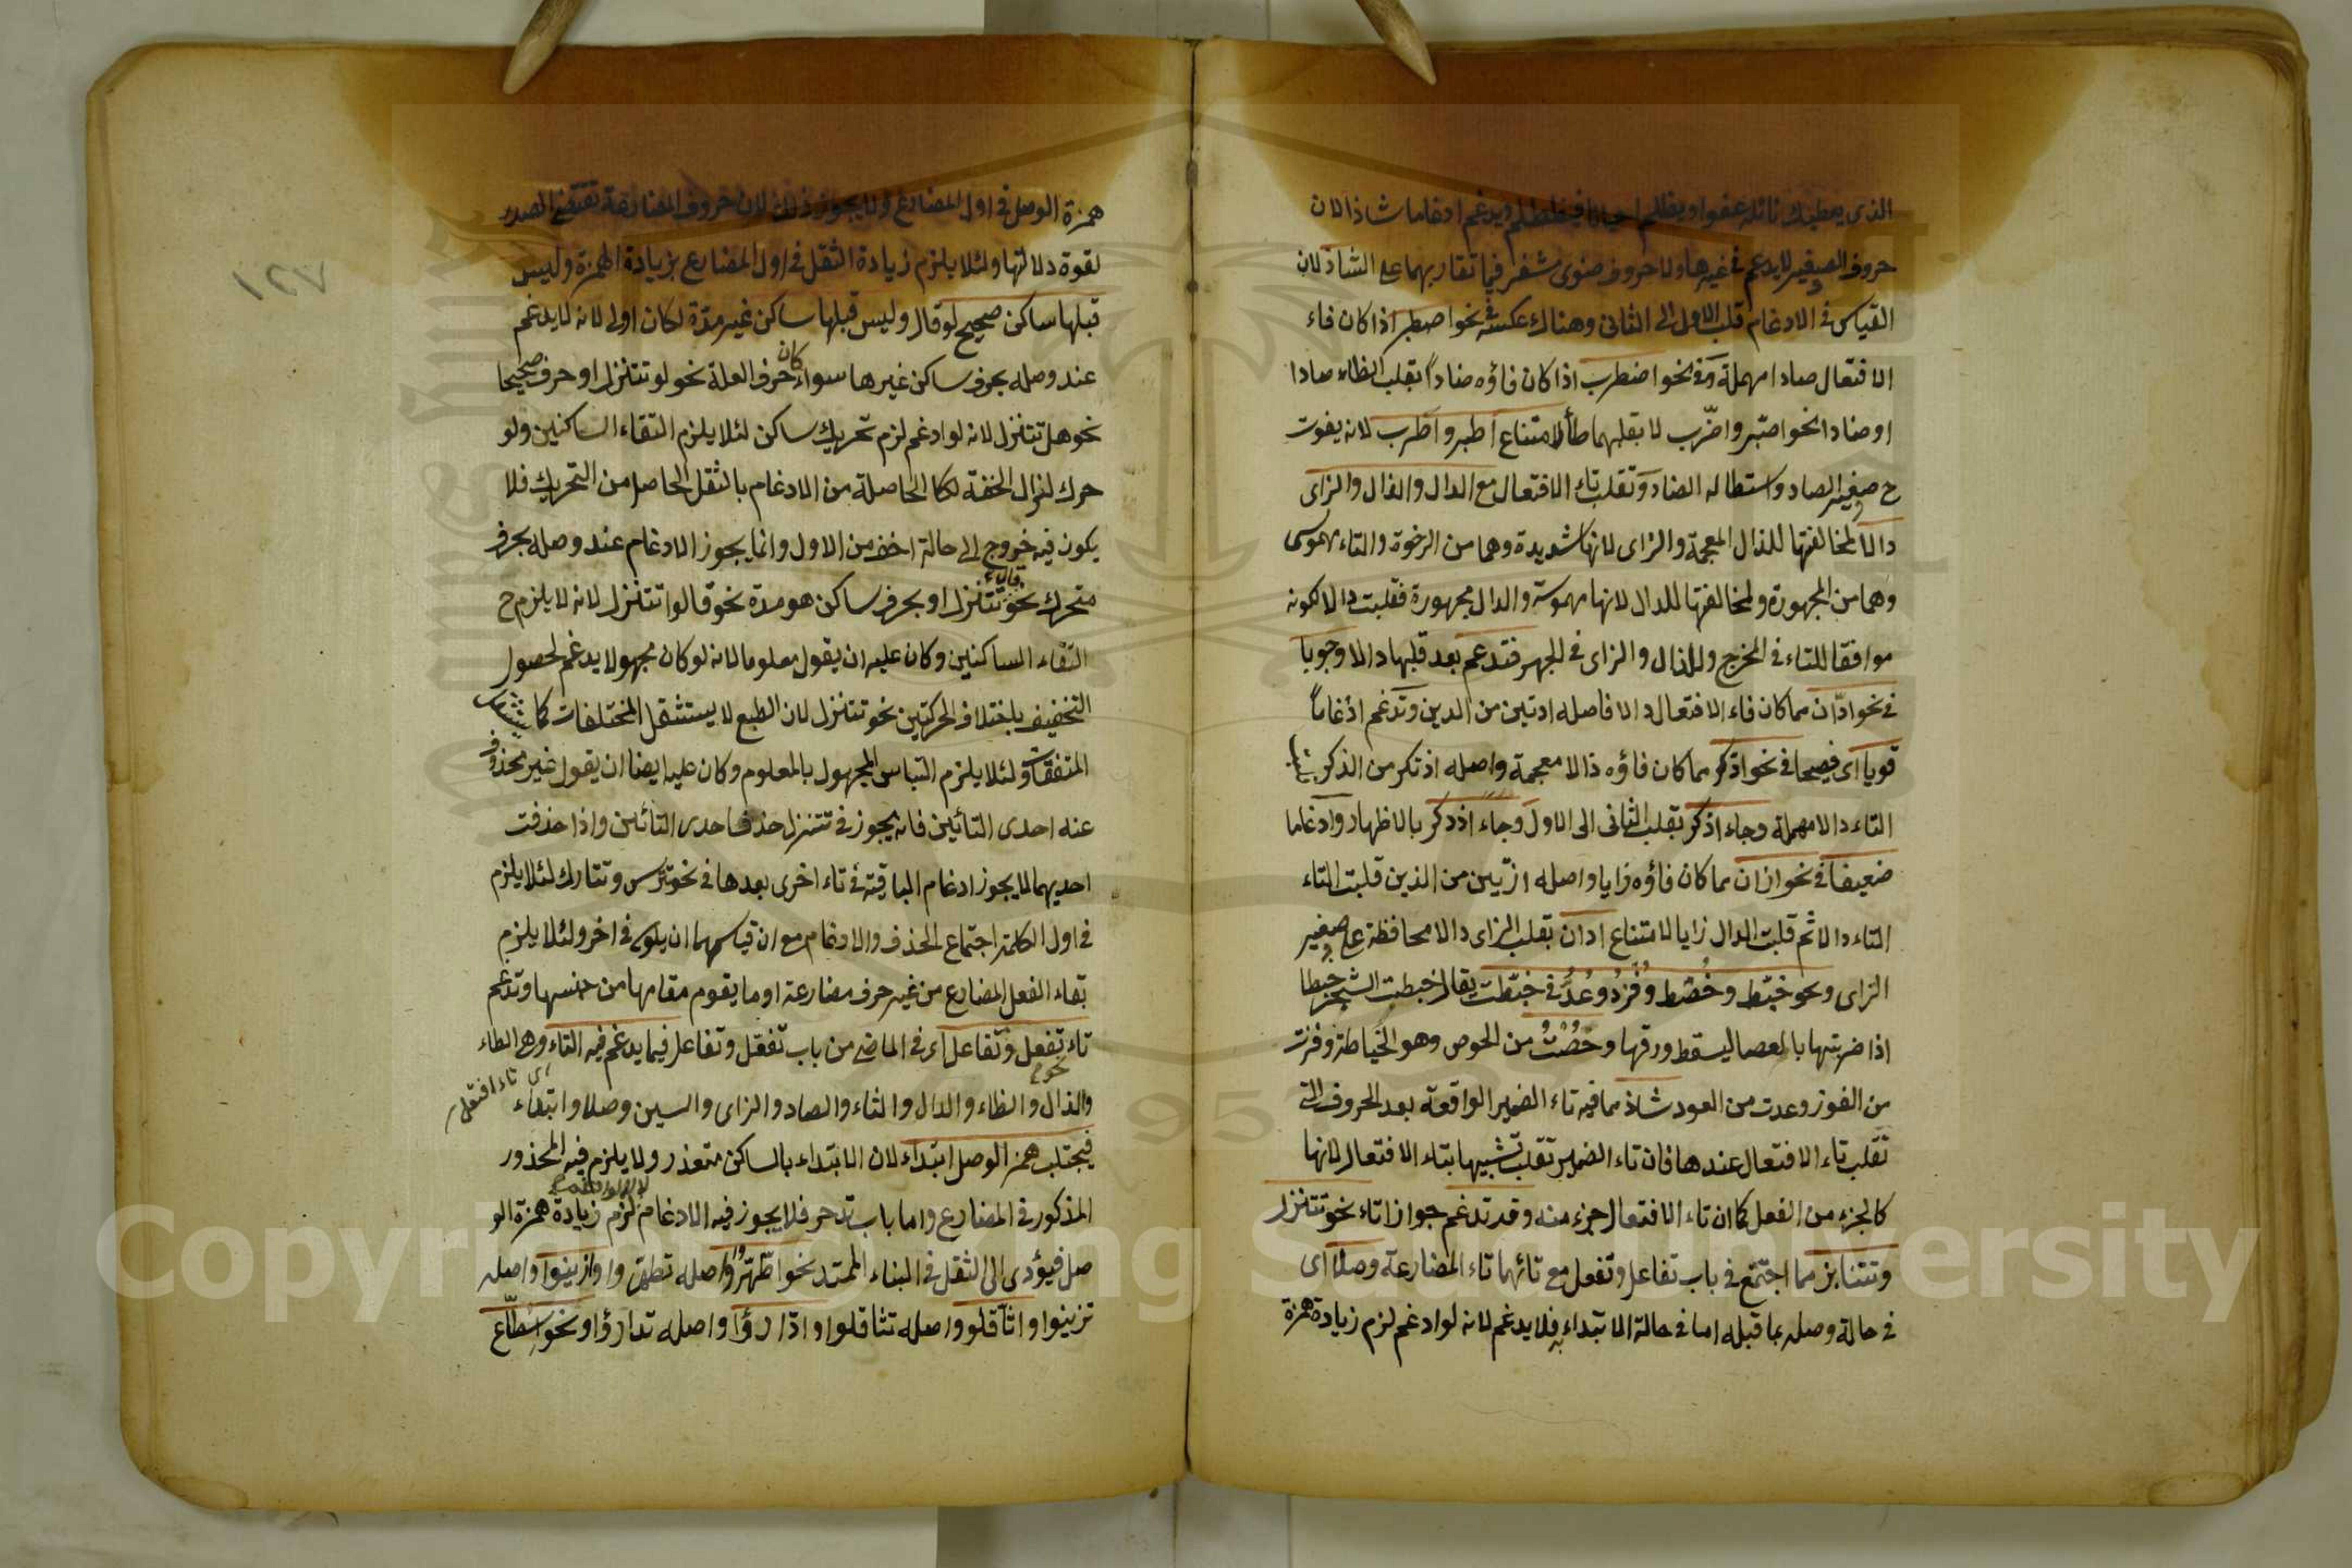 الذى يعطيك نائله عفوا ويظلم احيانا فيظطلم ويدغم ادغاما شاذا لان
حروف الصفير لا يدغم فى غيرها ولا حروف ضوى مشفر فيما تقاربهما على الشاذ لان
القياس فى الادغام قلب الاول الى الثانى وهناك عكسه فى نحو اصطبر اذا كان فاء
الافتعال صادا مهملة وفى نحو اضطرب اذا كان فاؤه ضادا بقلب الطاء صادا
او ضادا نحو اصّبر واضّرب لا بقلبهما طأ لامتناع اطبر واطرب لانه يفوت
ح صفير الصاد واستطالة الضاد وتقلب تاء الافتعال مع الدال والذال والزاى
دالا لمخالفتها للذال المعجمة والزاى لانها شديدة وهما من الرخوة والتاء مهموسة
وهما من المجهورة ولمخالفتها للدال لانها مهموسة والدال مجهورة فقلبت دالا لكونه
موافقا للتاء فى المخرج وللذال والزاى فى الجهر فتدغم بعد قلبها دالا وجوبا
فى نحو ادّان مما كان فاء الافتعال دالا فاصله ادتين من الدين وتدغم ادغاما
قويا اى فصيحا فى نحو ادّكر مما كان فاؤه ذالا معجمة واصله اذتكر من الذكر
التاء دالا مهملة وجاء اذّكر بقلب الثانى الى الاول وجاء اذدكر بالاظهار وادغاما
ضعيفا فى نحو ازان مما كان فاؤه زايا واصله ازتين من الذين قلبت التاء
التاء دالا ثم قلبت الدال زايا لامتناع ادان بقلب الزاى دالا محافظة على صفير
الزاى ونحو خبّط وخُصْط وفُزْدُ وعُدُّ فى خبّطت يقال خبطت الشجر خبطا
اذا ضربتها بالعصا ليسقط ورقها وحُصْتُ من الحوص وهو الخياطة وفزت
من الفوز وعدت من العود شاذ مما فيه تاء الضمير الواقعة بعد الحروف التى
تقلب تاء الافتعال عندها فان تاء الضمير تقلب تشبيها بتاء الافتعال لانها
كالجزء من الفعل كما ان تاء الافتعال جزء منه وقد تدغم جوازا تاء نحو تتنزل
وتتنابز مما اجتمع فى باب تفاعل وتفعل مع تائهما تاء المضارعة وصلا اى
فى حالة وصله بما قبله اما فى حالة الابتداء به فلا يدغم لانه لو ادغم لزم زيادة همزة
١٢٧
همزة الوصل فى اول المضارع ولا يجوز ذلك لان حروف المضارعة تقتضى الصدر
لقوة دلالتها ولئلا يلزم زيادة الثقل فى اول المضارع بزيادة الهمزة وليس
قبلها ساكن صحيح لو قال وليس قبلها ساكن غير مدة لكان اولى لانه لا يدغم
عند وصله بحرف ساكن غيرها سواء كان حرف العلة نحو لو تتنزل او حرف صحيحا
نحو هل تتنزل لانه لو ادغم لزم تحريك ساكن لئلا يلزم التقاء الساكنين ولو
حرك لزال الخفة الحاصلة من الادغام بالثقل الحاصل من التحريك فلا
يكون فيه خروج الى حالة اخف من الاول وانما يجوز الادغام عند وصله بحرف
متحرك نحو قال تتنزل او بحرف ساكن هو مدة نحو قالوا تتنزل لانه لا يلزم ح
التقاء الساكنين وكان عليه ان يقول معلوما لانه لو كان مجهولا يدغم لحصول
التخفيف باختلاف الحركتين نحو تتنزل لان الطبع لا يستثقل المختلفات كما يستثقل
المتفقات ولئلا يلزم التباس المجهول بالمعلوم وكان عليه ايضا ان يقول غير محذوف
عنه احدى التائين فانه يجوز فى تتنزل حذف احدى التائين واذا حذفت
احديهما لا يجوز ادغام الباقية فى تاء اخرى بعدها فى نحو تترس وتتارك لئلا يلزم
فى اول الكلمة اجتماع الحذف والادغام مع ان قياسهما ان يكون فى اخر ولئلا يلزم
بقاء الفعل المضارع من غير حرف مضارعة او ما يقوم مقامها من جنسها وتدغم
تاء تفعل وتفاعل اى فى الماضى من باب تفعّل وتفاعل فيما يدغم فيه التاء وهى الطاء
والذال والظاء والدال والثاء والصاد والزاى والسين وصلا وابتداء اى تاء افتعل
فيجتلب همزة الوصل ابتداء لان الابتداء بالساكن متعذر ولا يلزم فيه المحذور
المذكور فى المضارع واما باب تدحرج فلا يجوز فيه الادغام لزم زيادة همزة الو
صل فيؤدى الى الثقل فى البناء الممتد نحو اطّهّروا واصله تطهروا وازينوا واصله
تزينوا واثّاقلوا واصله تثاقلوا وادّارؤا واصله تدارؤا ونحو اسطّاع
Copyright © King Saud University